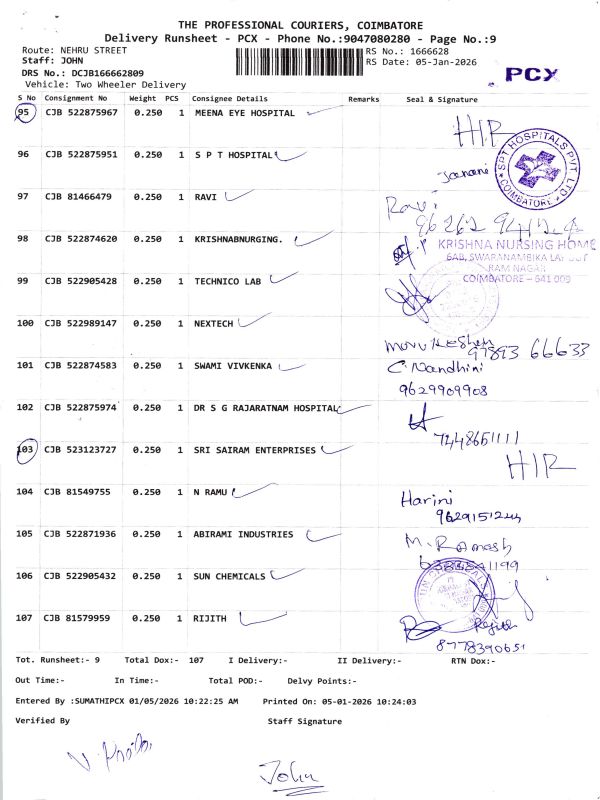 THE PROFESSIONAL COURIERS, COIMBATORE
Delivery Runsheet - PCX - Phone No.:9047080280 - Page No.:9
Route: NEHRU STREET
RS No.: 1666628
Staff: JOHN
RS Date: 05-Jan-2026
DRS No.: DCJB166662809
PCX
Vehicle: Two Wheeler Delivery
S No Consignment No Weight PCS Consignee Details Remarks Seal & Signature
95 CJB 522875967 0.250 1 MEENA EYE HOSPITAL
HIR
96 CJB 522875951 0.250 1 S P T HOSPITAL
Janani
SPT HOSPITALS PVT LTD
COIMBATORE
97 CJB 81466479 0.250 1 RAVI
Ravi
98 CJB 522874620 0.250 1 KRISHNABNURGING.
KRISHNA NURSING HOME
6AB, SWARANAMBIKA LAYOUT
RAM NAGAR
COIMBATORE - 641 009
99 CJB 522905428 0.250 1 TECHNICO LAB
100 CJB 522989147 0.250 1 NEXTECH
97893 66633
101 CJB 522874583 0.250 1 SWAMI VIVKENKA
C. Nandhini
9629909908
102 CJB 522875974 0.250 1 DR S G RAJARATNAM HOSPITAL
7248651111
103 CJB 523123727 0.250 1 SRI SAIRAM ENTERPRISES
HIR
104 CJB 81549755 0.250 1 N RAMU
Harini
105 CJB 522871936 0.250 1 ABIRAMI INDUSTRIES
M. Ramesh
106 CJB 522905432 0.250 1 SUN CHEMICALS
107 CJB 81579959 0.250 1 RIJITH
Rejith
8778390651
Tot. Runsheet:- 9 Total Dox:- 107 I Delivery:- II Delivery:- RTN Dox:-
Out Time:- In Time:- Total POD:- Delvy Points:-
Entered By :SUMATHIPCX 01/05/2026 10:22:25 AM Printed On: 05-01-2026 10:24:03
Verified By Staff Signature
John